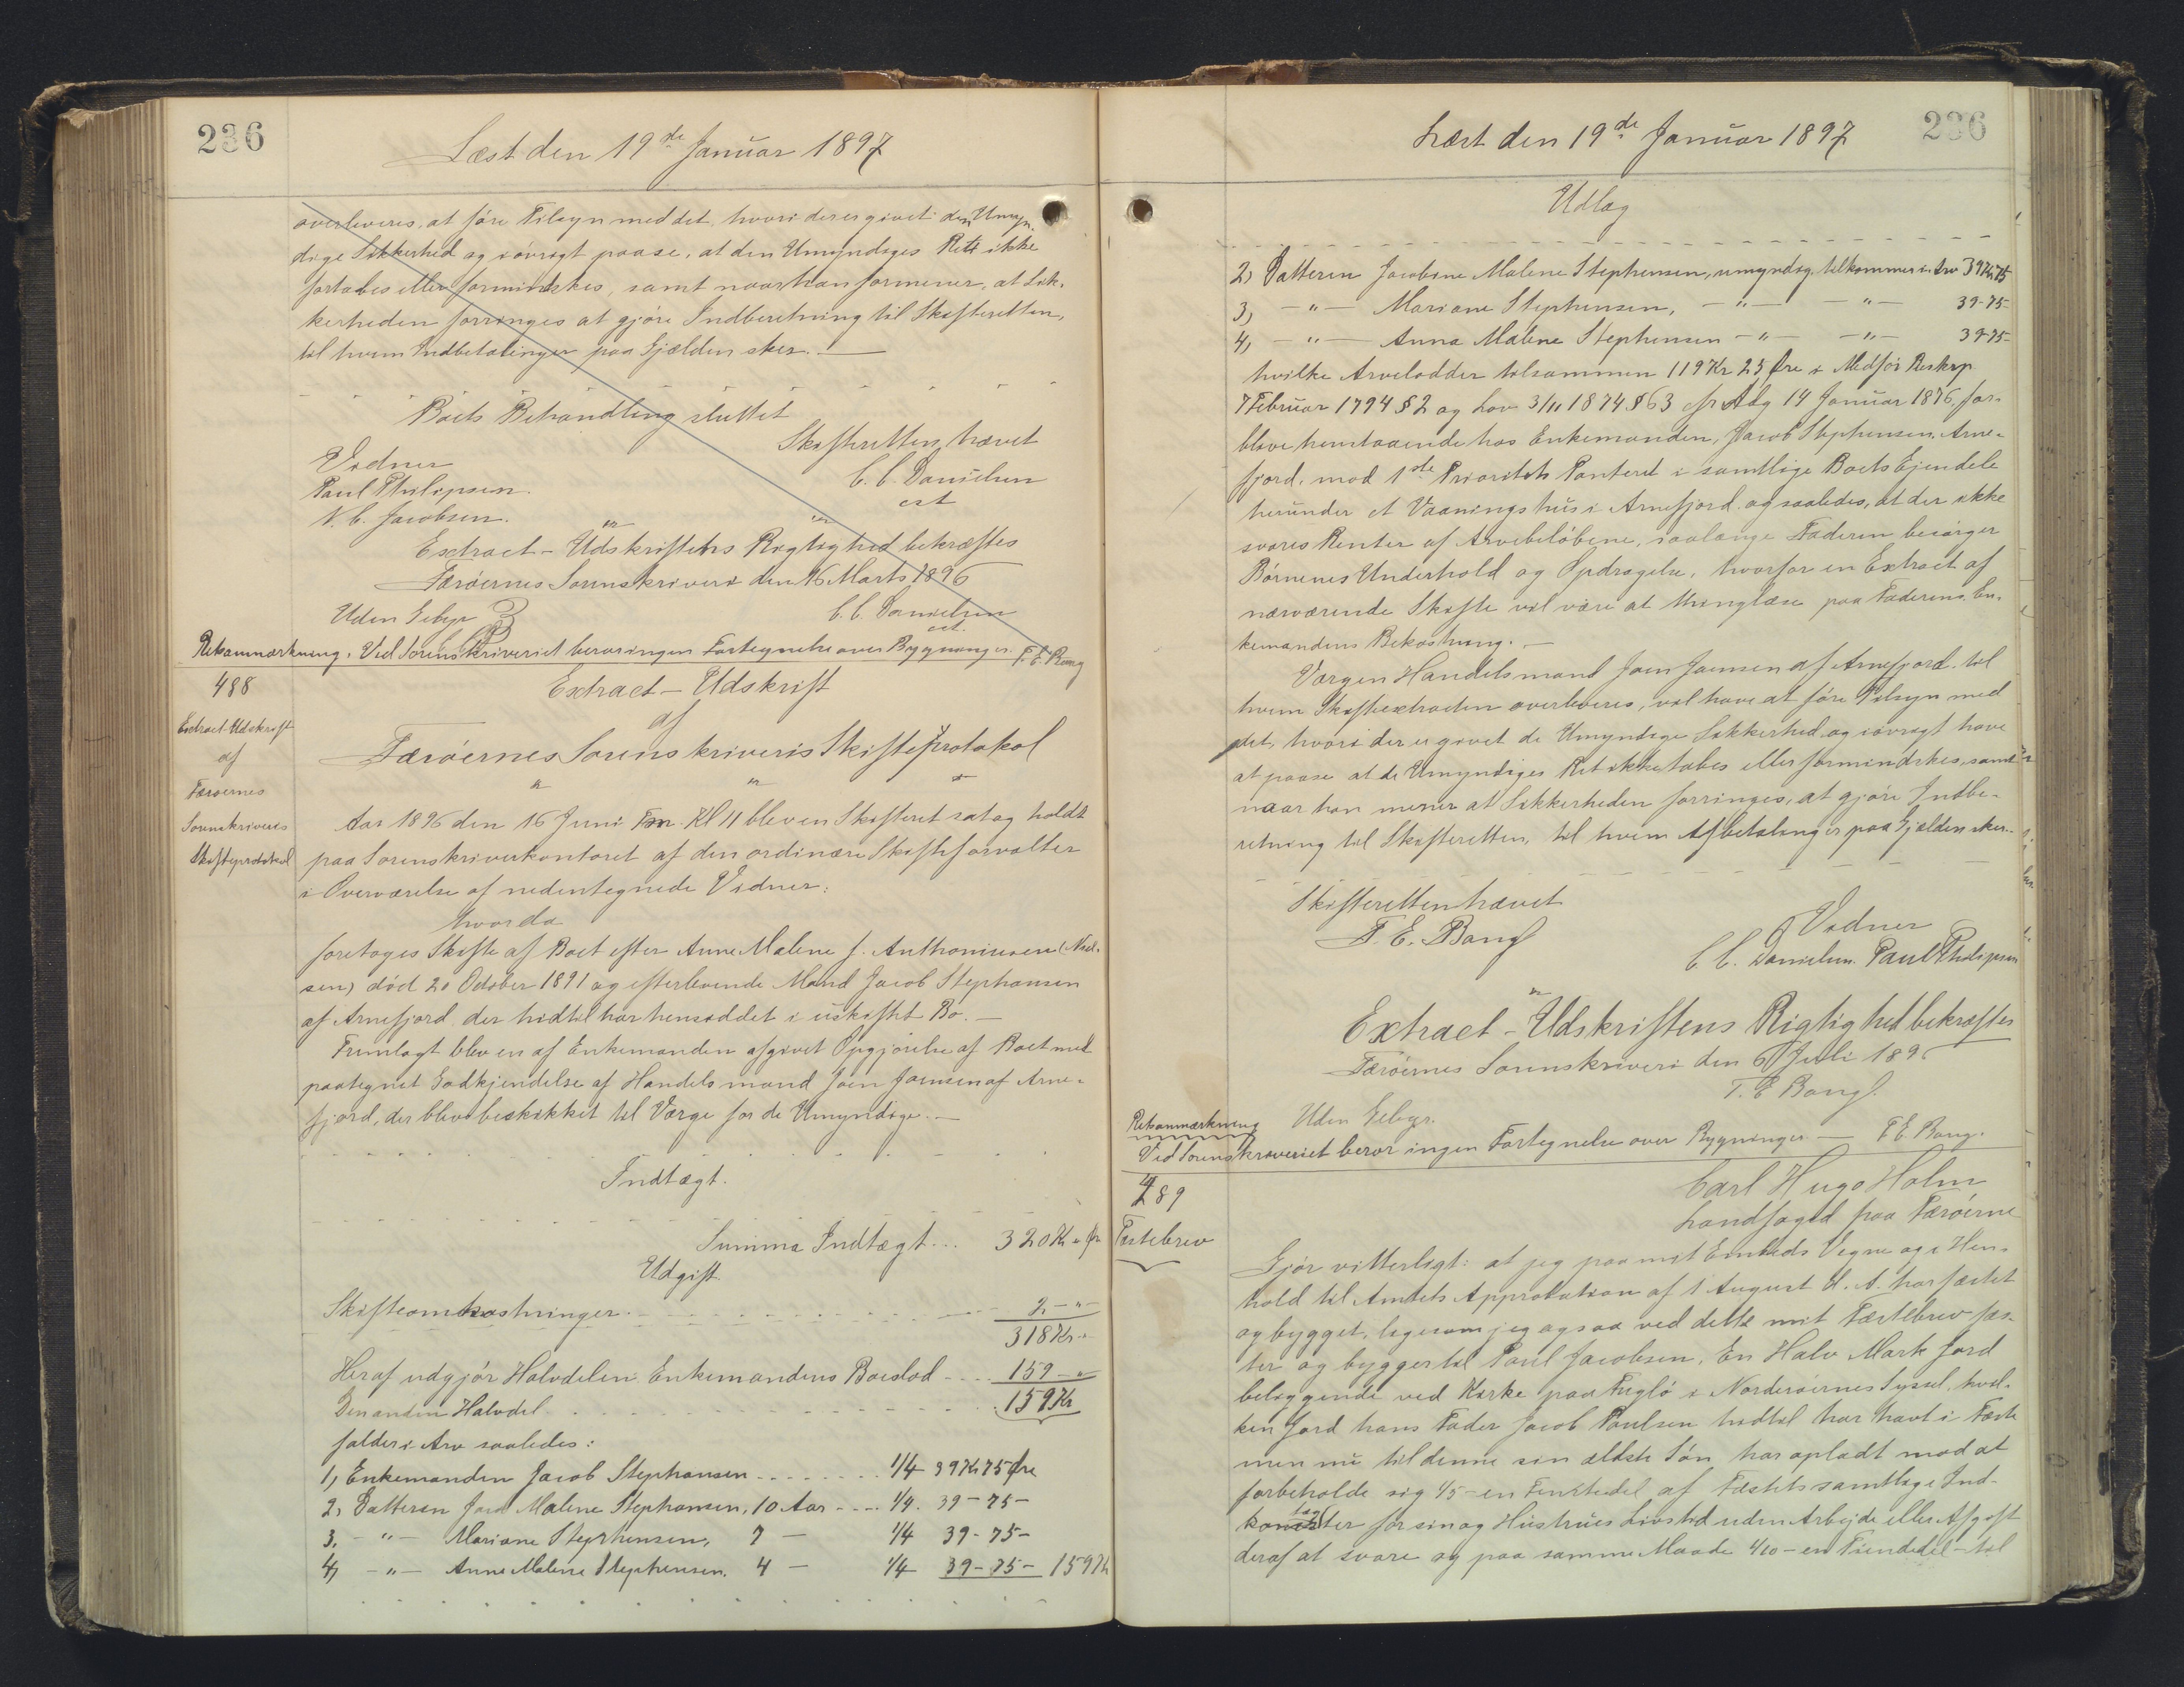 236
Læst den 19de Januar 1897
overleveres, at føre Tilsyn med det, hvori der er givet den Umyn-
dige Sikkerhed og iøvrigt paase, at den Umyndiges Ret ikke
fortabes eller formindskes, samt naar han formener, at Sik-
kerheden forringes at gjøre Indberetning til Skifteretten,
til hvem Indbetalinger paa Gjælden sker. —
Boets Behandling sluttet
Skifteretten hævet
Vidner
C. C. Danielsen
Paul Philipsen.
cst
N. C. Jacobsen.
Extract-Udskriftens Rigtighed bekræftes
Færøernes Sorenskriveri den 16 Marts 1896
Uden Gebyr
C. C. Danielsen
cst.
Retsanmærkning. Ved Sorenskriveriet beror ingen Fortegnelse over Bygninger. F. E. Bang
488
Extract-Udskrift
Extract-Udskrift
af
af
Færøernes Sorenskriveris Skifteprotokol
Færøernes
Sorenskriveris
Skifteprotokol
Aar 1896 den 16 Juni Fm. Kl 11 blev en Skifteret sat og holdt
paa Sorenskriverkontoret af den ordinære Skifteforvalter
i Overværelse af nedentegnede Vidner:
hvor da
foretoges Skifte af Boet efter Anne Malene f. Anthoniusen (Niel-
sen) død 20 October 1891 og efterlevende Mand Jacob Stephansen
af Arnefjord der hidtil har hensiddet i uskiftet Bo. —
Fremlagt blev en af Enkemanden afgivet Opgjørelse af Boet med
paategnet Godkjendelse af Handelsmand Joen Joensen af Arne-
fjord, der blev beskikket til Værge for de Umyndige. —
Indtægt.
Summa Indtægt... 320 Kr " Ør
Udgift.
Skifteomkostninger. 2 - " -
318 Kr. "
Heraf udgjør Halvdelen Enkemandens Boeslod 159 - "
Den anden Halvdel 159 Kr
falder i Arv saaledes:
1, Enkemanden Jacob Stephansen 1/4 39 Kr 75 Øre
2, Datteren Jac. Malene Stephansen, 10 Aar 1/4. 39 - 75 -
3, - " - Mariane Stephensen, 7 — 1/4 39 - 75 -
4, - " - Anne Malene Stephensen. 4 — 1/4 39 - 75 - 159 Kr
236
Læst den 19de Januar 1897
Udlæg
2, Datteren Jacobine Malene Stephensen, umyndig, tilkommer i Arv 39 Kr 75
3, - " - Mariane Stephensen, - " - - " - 39 - 75 -
4, - " - Anna Malene Stephensen - " - - " - 39 - 75 -
hvilke Arvelodder tilsammen 119 Kr 25 Øre i Medfør Reskrp
7 Februar 1794 § 2 og Lov 3/11 1874 § 63 cfr Adg 14 Januar 1876, for-
blive henstaaende hos Enkemanden, Jacob Stephensen, Arne-
fjord, mod 1ste Prioritets Panteret i samtlige Boets Ejendele
herunder et Vaaningshus i Arnefjord og saaledes, at der ikke
svares Renter af Arvebeløbene, saalænge Faderen besørger
Børnenes Underhold og Opdragelse, hvorfor en Extract af
nærværende Skifte vil være at thinglæse paa Faderens, En-
kemandens Bekostning. —
Værgen Handelsmand Joen Joensen af Arnefjord, til
hvem Skifteextracten overleveres, vil have at føre Tilsyn med
det, hvori der er givet de Umyndige Sikkerhed og iøvrigt have
at paase at de Umyndiges Ret ikke tabes eller formindskes, samt
naar han mener at Sikkerheden forringes, at gjøre Indbe-
retning til Skifteretten, til hvem Afbetalinger paa Gjælden sker. -
Skifteretten hævet
F. E. Bang
Vidner
C. C. Danielsen. Paul Philipsen
Extract-Udskriftens Rigtighed bekræftes
Færøernes Sorenskriveri den 6 Juli 1896
F. E Bang
Uden Gebyr.
Retsanmærkning
Ved Sorenskriveriet beror ingen Fortegnelse over Bygninger — F E. Bang.
489
Carl Hugo Holm
Landfoged paa Færøerne
Fæstebrev
Gjør vitterligt: at jeg paa mit Embeds Vegne og i Hen-
hold til Amtets Approbation af 1 August d. A. har fæstet
og bygget, ligesom jeg ogsaa ved dette mit Fæstebrev fæs-
ter og bygger til Poul Jacobsen, En Halv Mark Jord
beliggende ved Kirke paa Fuglø i Norderøernes Syssel, hvil-
ken Jord hans Fader Jacob Poulsen hidtil har havt i Fæste
men nu til denne sin ældste Søn har opladt mod at
forbeholde sig 1/5 - en Femtedel af Fæstets samtlige Ind-
tægter for sin og Hustrues Livstid uden Arbejde eller Afgift
deraf at svare og paa samme Maade 1/10 - en Tiendedel - til